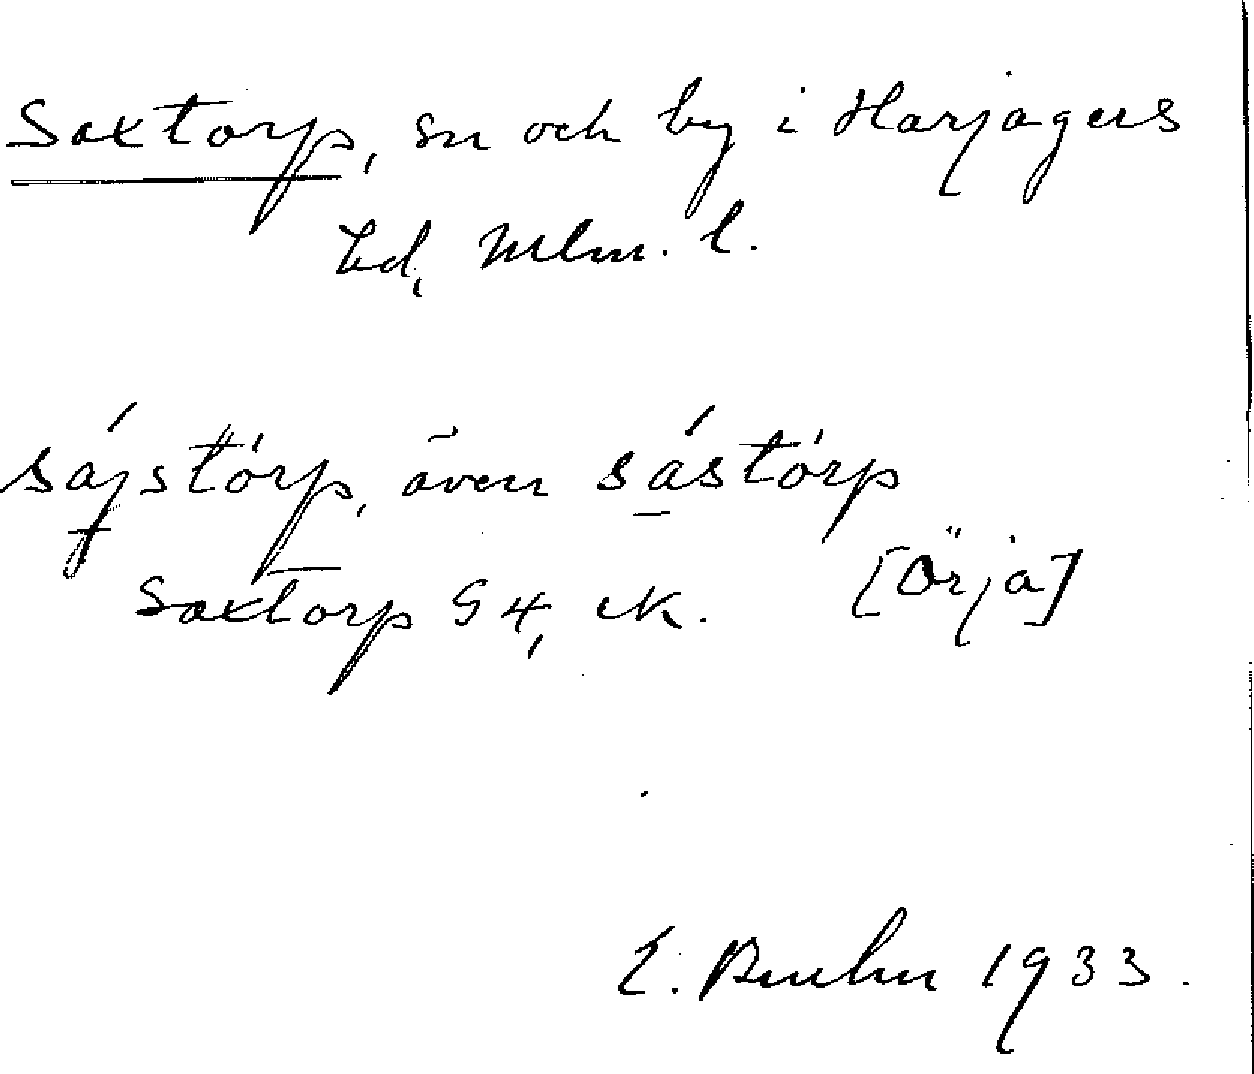 Saxtorp, sn och by i Harjagers
hd, Mlm. l.
sájstórp, även sástórp
Saxtorp G4, ek. [Örja]
E. Bruhn 1933.